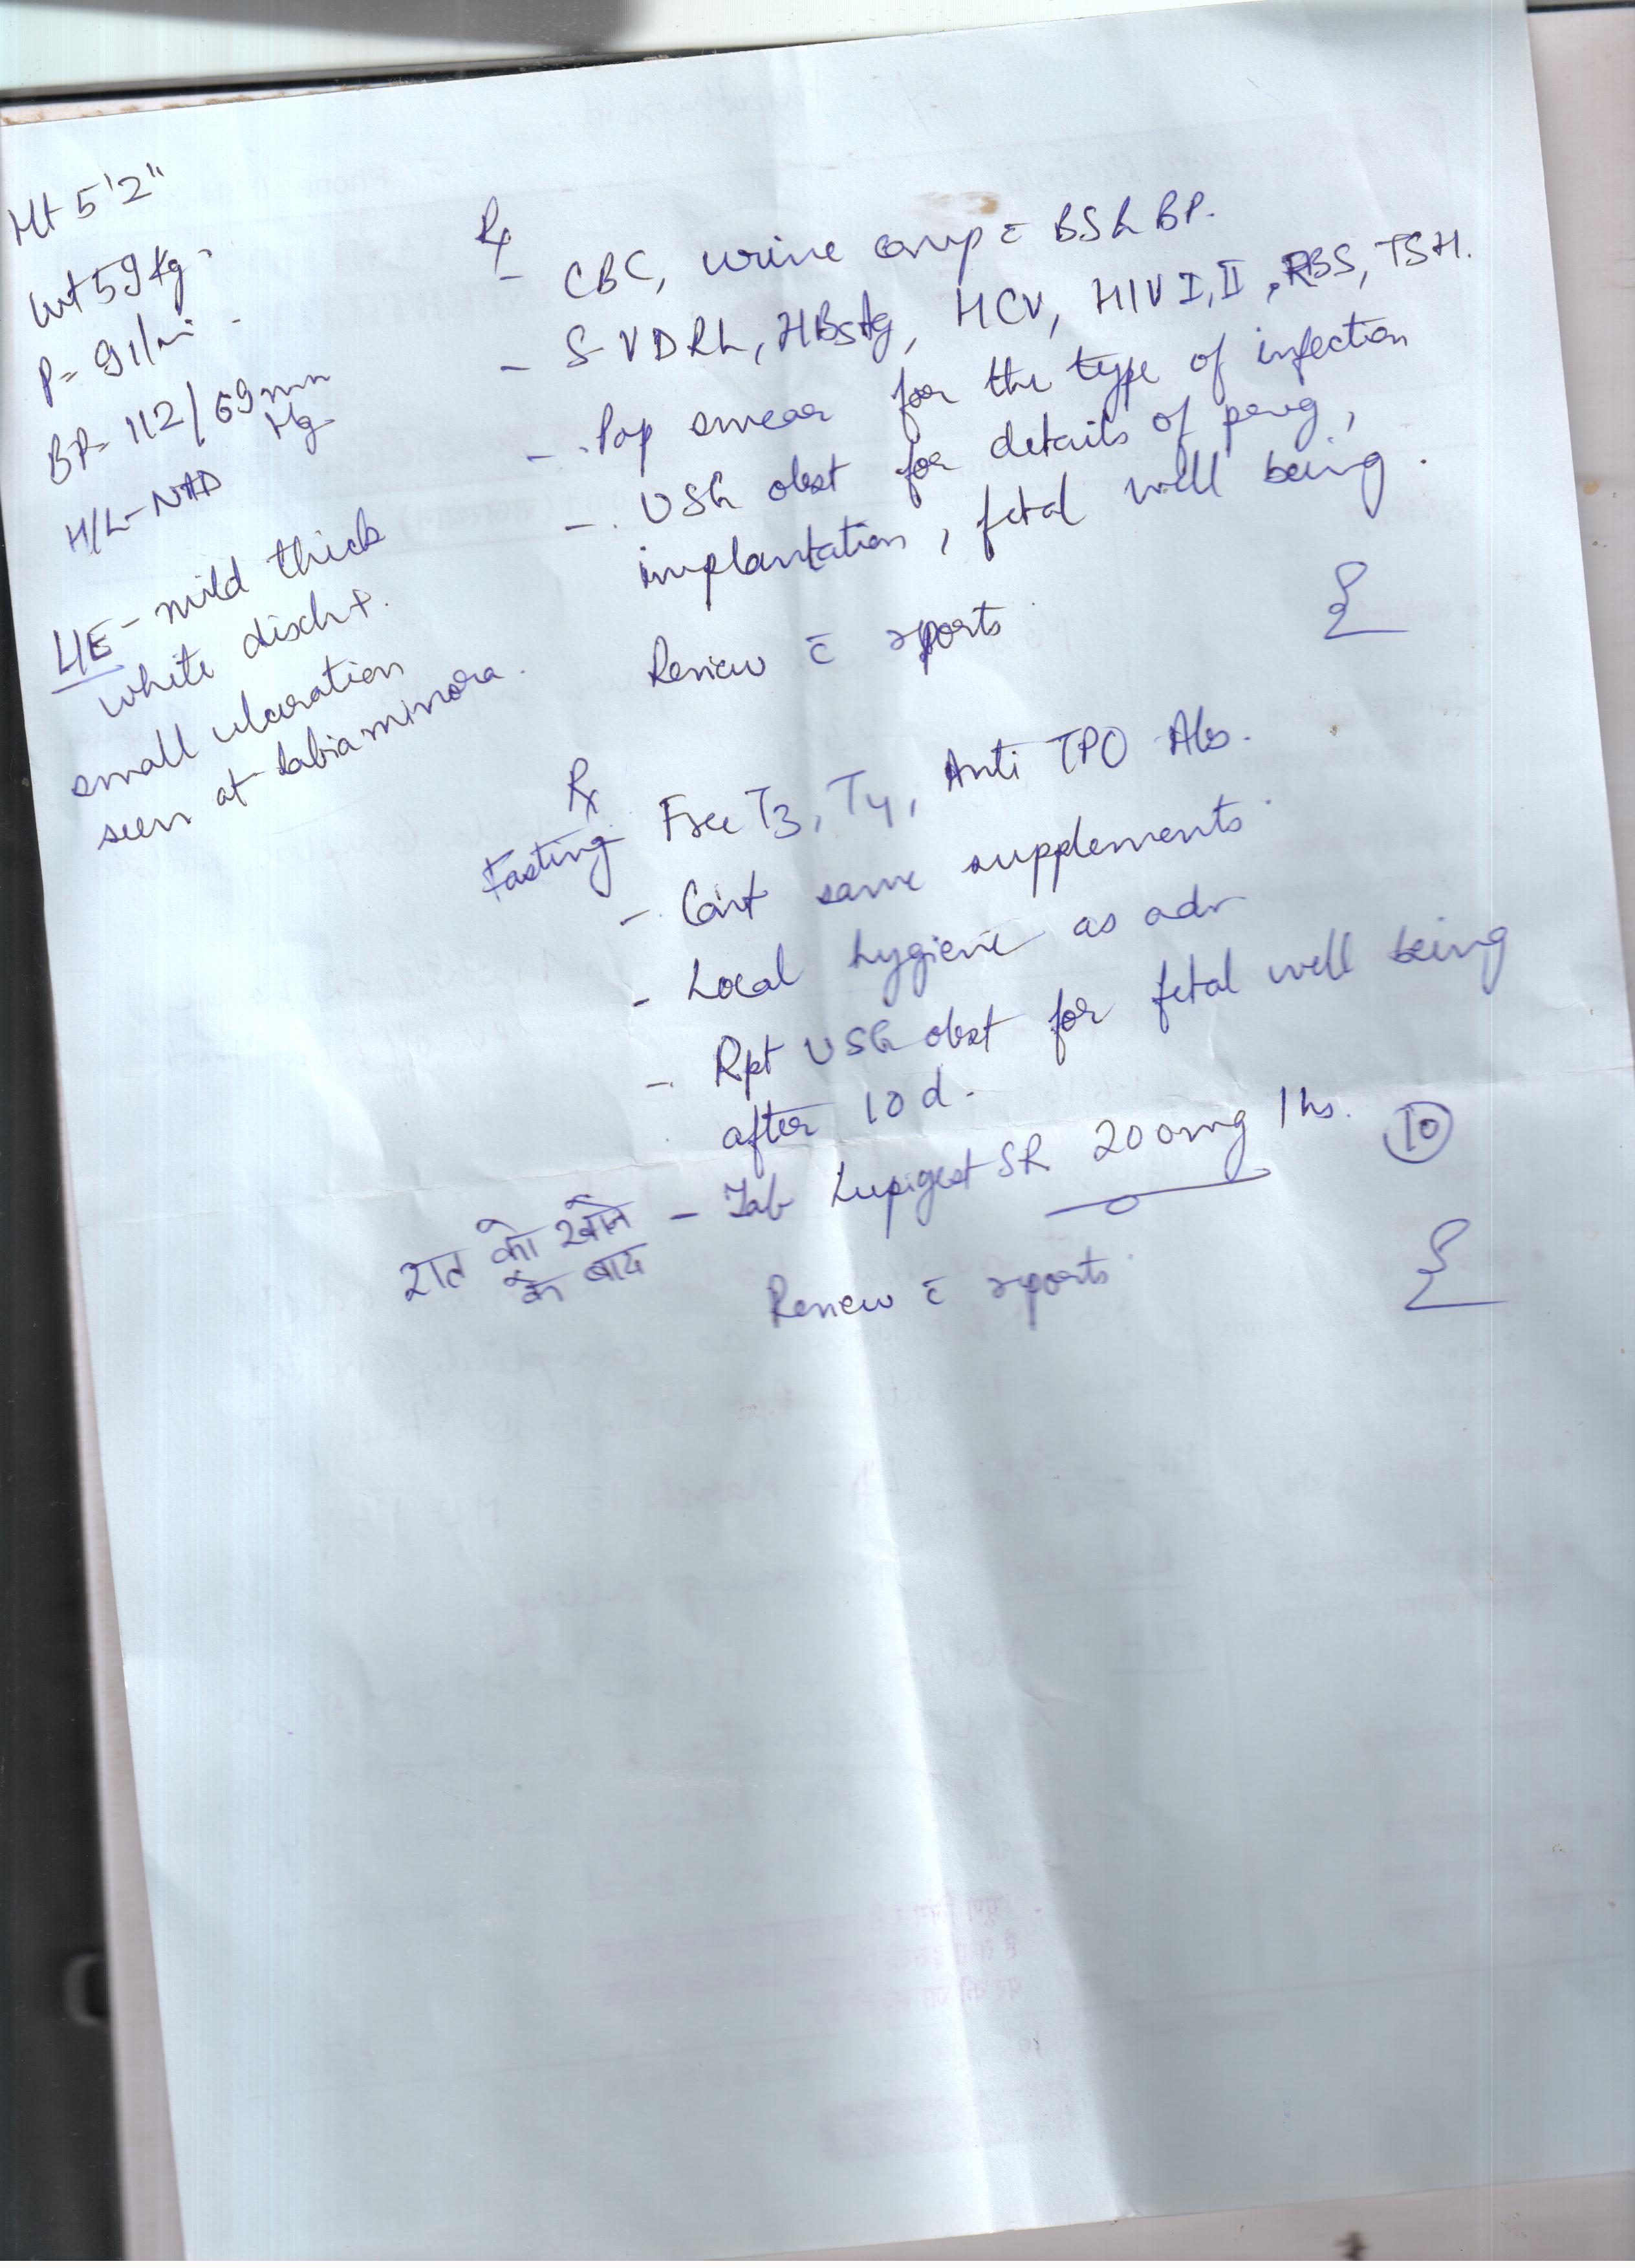 Ht 5'2"
Wt 59 kg.
P- 91/mi
BP- 112/69 mm
Hg
H/L- NAD
L/E - mild thick
white disch+.
small ulceration
seen at labia minora.
Rx
- CBC, urine comp c̄ BS & BP.
- S-VDRL, HBsAg, HCV, HIV I, II, RBS, TSH.
- Pap smear for the type of infection
- USG obst for details of preg,
implantation, fetal well being.
Review c̄ reports
Rx
fasting Free T3, T4, Anti TPO Abs.
- Cont same supplements
- Local hygiene as adv
- Rpt USG obst for fetal well being
after 10 d.
- Tab Lupigest SR 200mg 1 hs. 10
रात को खाने
के बाद
Review c̄ reports